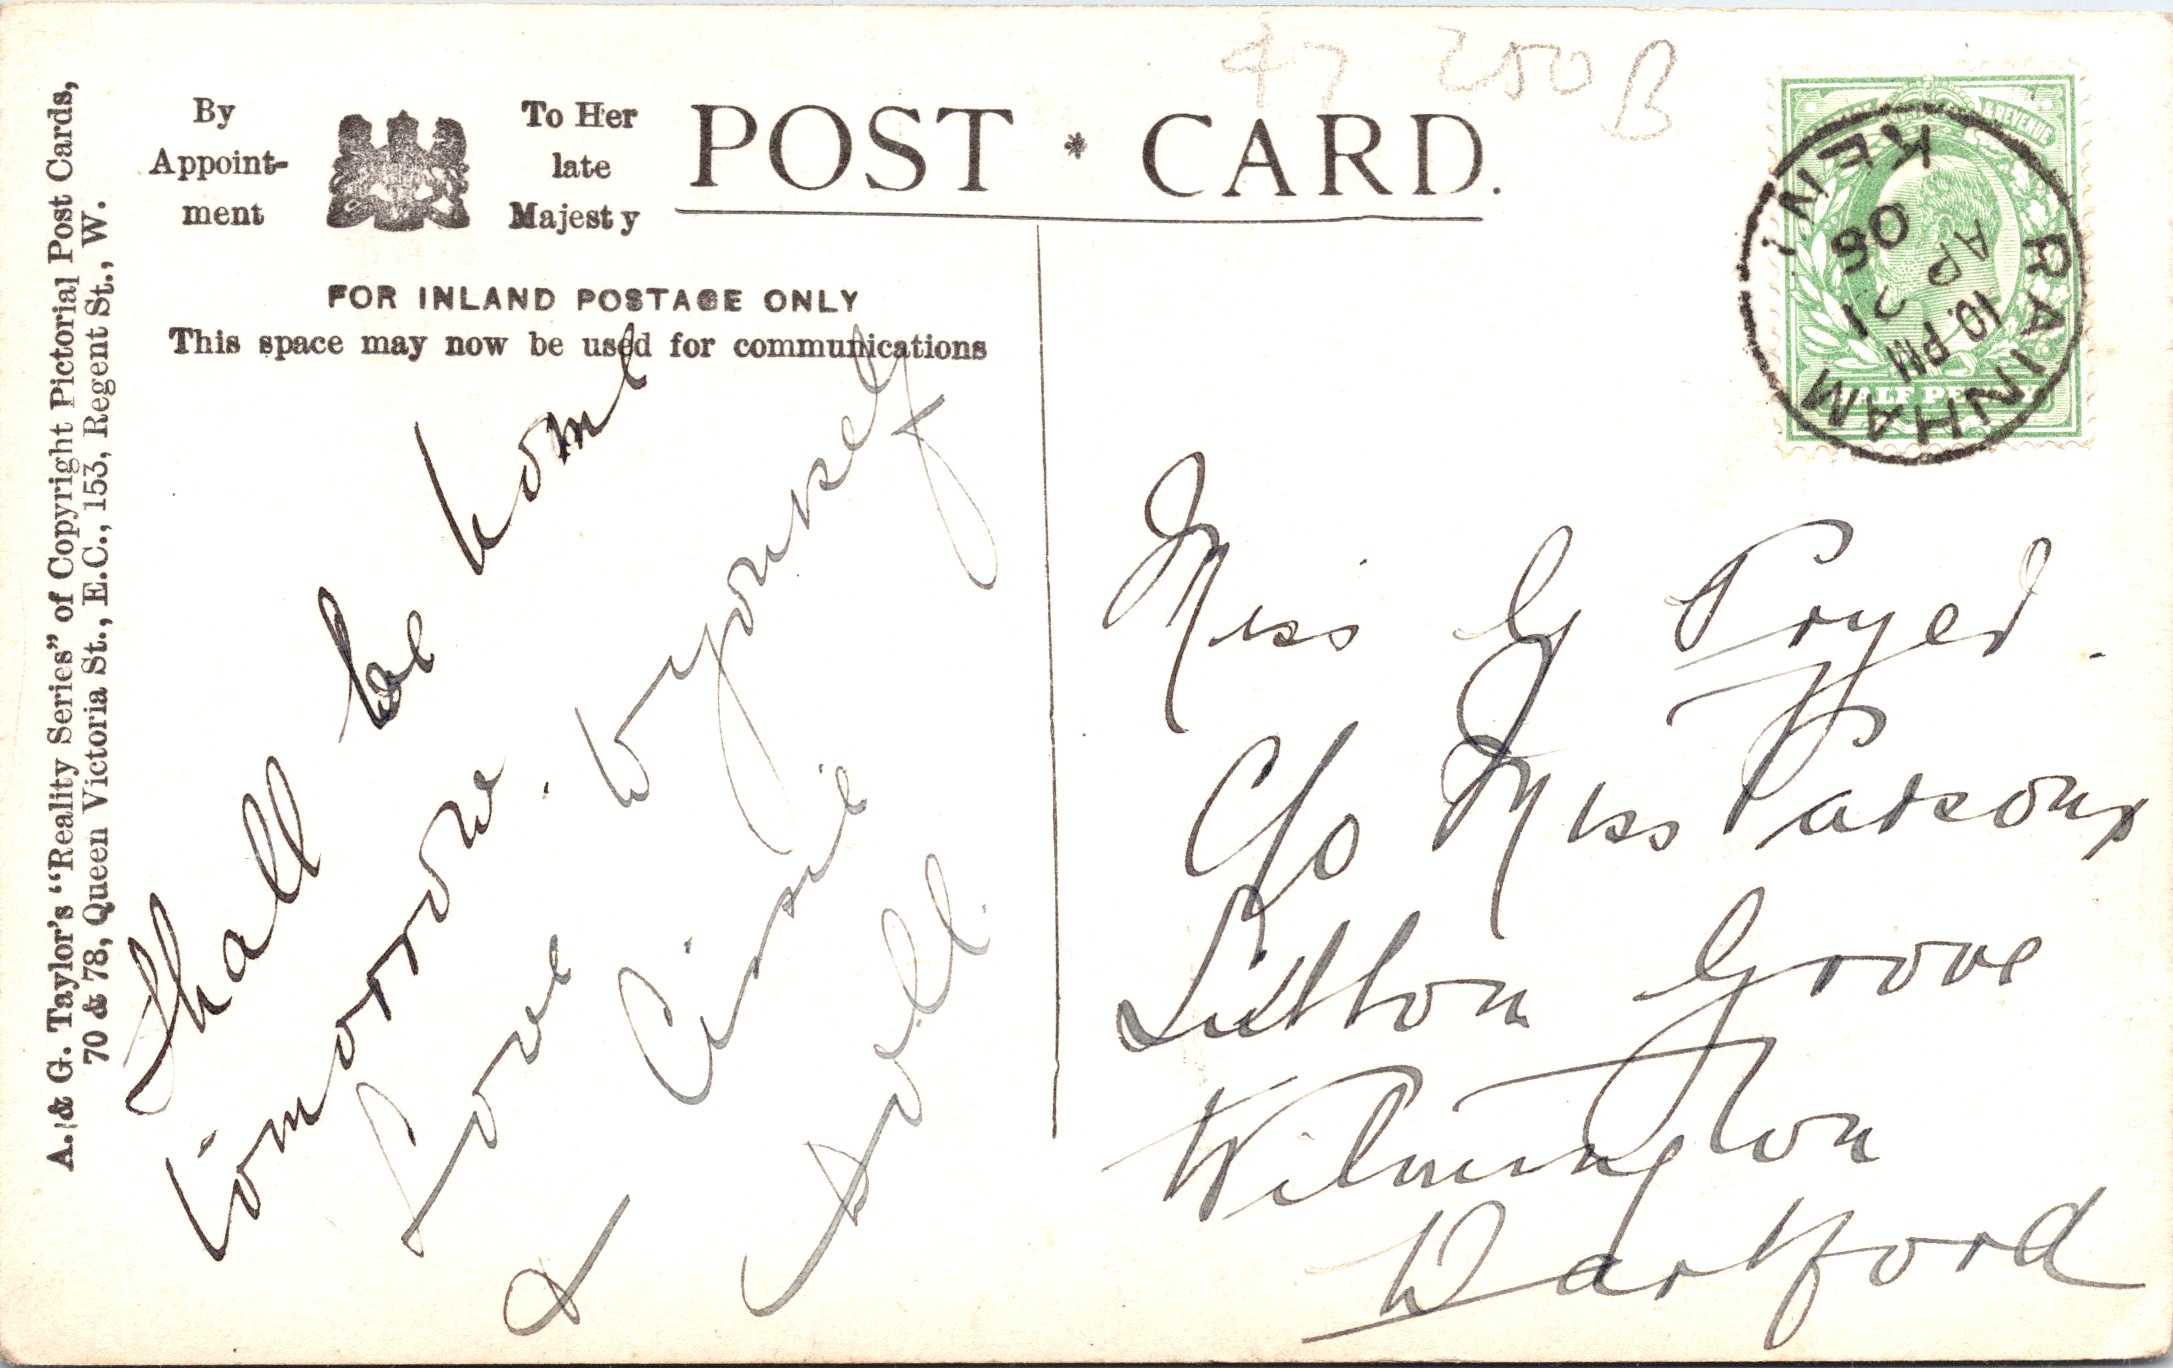 47 250 B
By
Appoint-
ment
To Her
late
Majesty
POST * CARD.
FOR INLAND POSTAGE ONLY
This space may now be used for communications
A. & G. Taylor's "Reality Series" of Copyright Pictorial Post Cards,
70 & 78, Queen Victoria St., E.C., 153, Regent St., W.
Shall be home
tomorrow. by yourself
Love
&
Miss G Pryed.
C/o Miss Parsons
Sutton Grove
Wilmington
Dartford
& REVENUE
HALF PENNY
RAINHAM
10. PM
21
AP
06